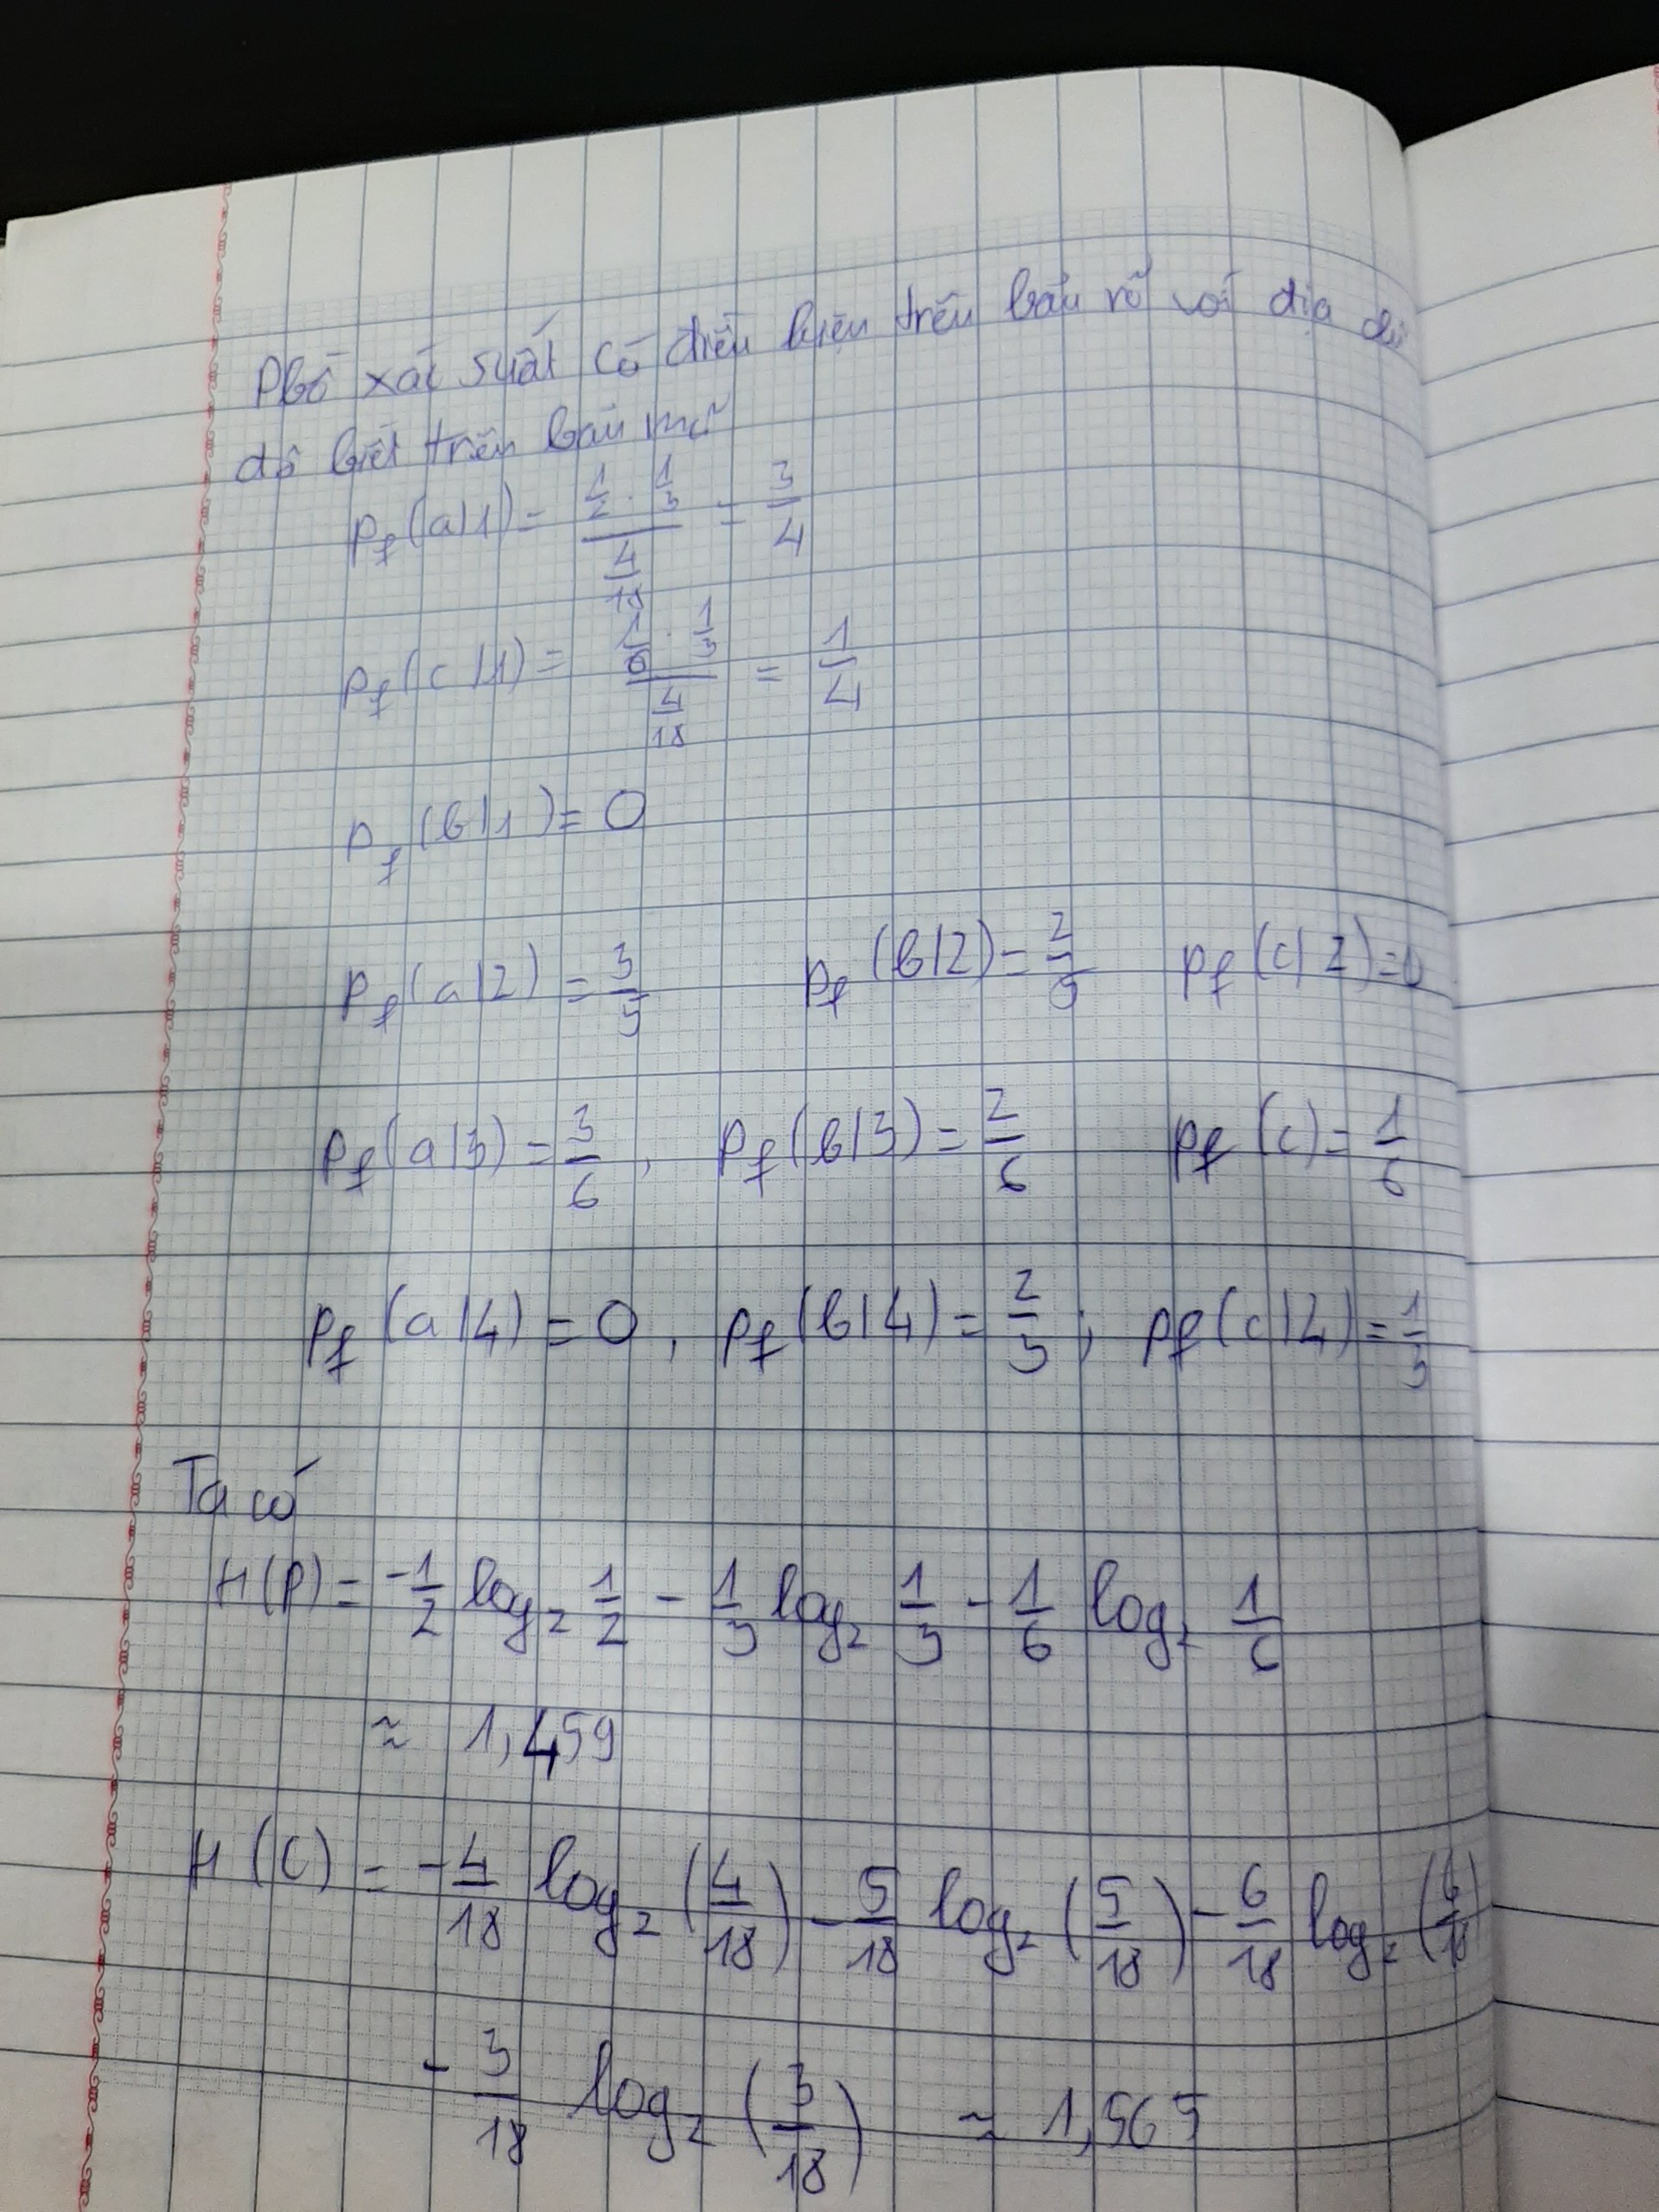 Pbố xác suất có điều kiện trên bản rõ với địa chỉ
đó biết trên bản mã
P_f(a|1) = (1/2 · 1/3) / (4/18) = 3/4
P_f(c|1) = (1/6 · 1/3) / (4/18) = 1/4
P_f(b|1) = 0
P_f(a|2) = 3/5 P_f(b|2) = 2/5 P_f(c|2) = 0
P_f(a|3) = 3/6, P_f(b|3) = 2/6 P_f(c) = 1/6
P_f(a|4) = 0, P_f(b|4) = 2/3; P_f(c|4) = 1/3
Ta có
H(P) = -1/2 log₂ 1/2 - 1/3 log₂ 1/3 - 1/6 log₂ 1/6
≈ 1,459
H(C) = -4/18 log₂ (4/18) - 5/18 log₂ (5/18) - 6/18 log₂ (6/18)
- 3/18 log₂ (3/18) ≈ 1,565